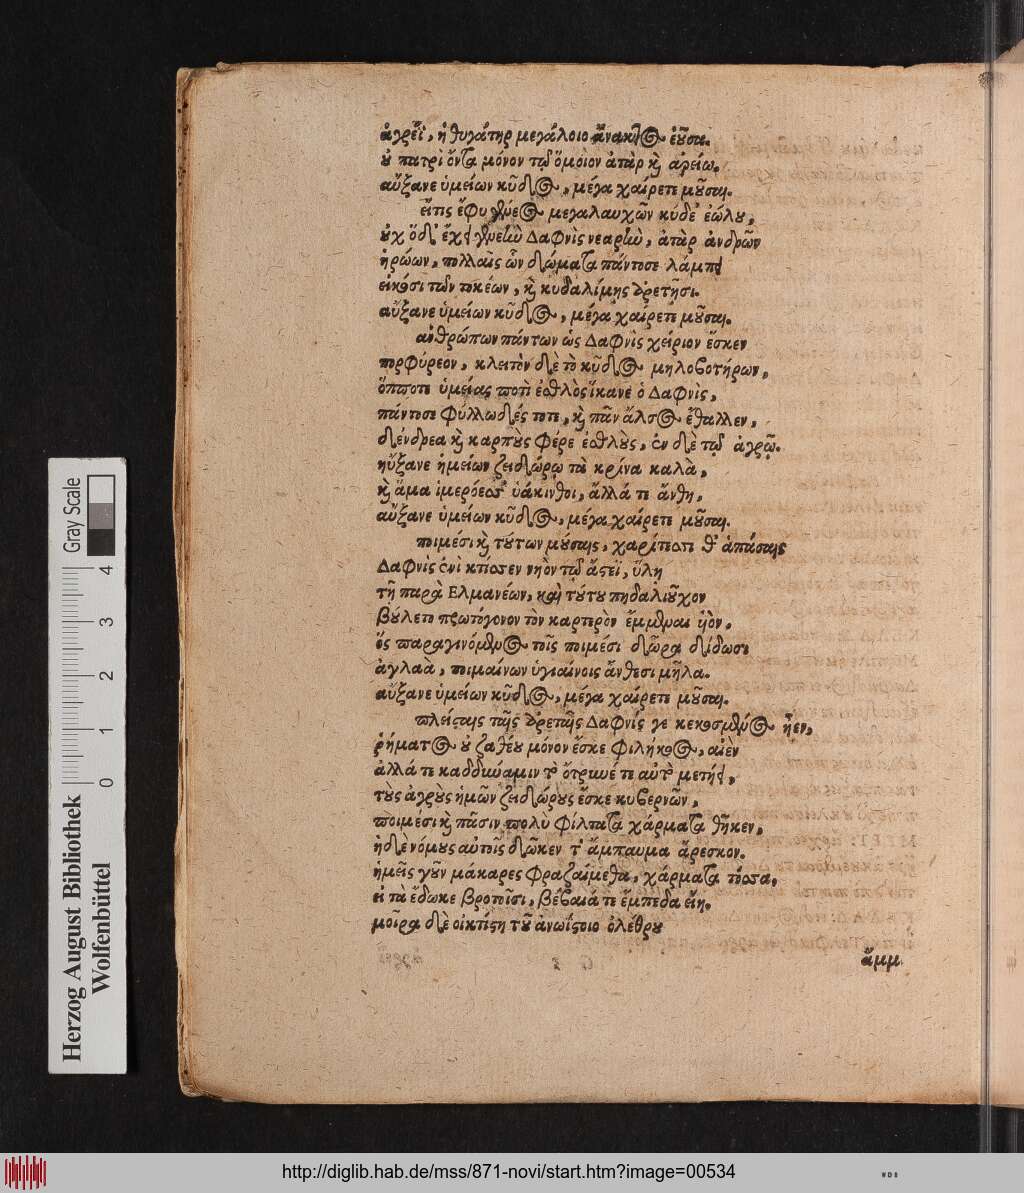 ἀγρεῖ, ἡ θυγάτηρ μεγάλοιο ἄνακτος ἐοῦσα.
οὐ πατρὶ ὄντα μόνον τῷ ὅμοιον ἀτὰρ καὶ ἀρείω.
αὔξανε ὑμείων κῦδος, μέγα χαίρετε μοῦσαι.
εἴτις ἔφυ μεγαλαυχῶν κύδε᾽ ἑώλου,
οὐχ ὅδ᾽ ἔχει Δαφνὶς νεαρὴν, ἀτὰρ ἀνδρῶν
ἡρώων, πολλαῖς ὧν δώματα πάντοσε λάμπει
εἰκόσι τῶν τοκέων, καὶ κυδαλίμης ἀρετῆσι.
αὔξανε ὑμείων κῦδος, μέγα χαίρετε μοῦσαι.
ἀνθρώπων πάντων ὡς Δαφνὶς χείριον ἔσκεν
πορφύρεον, κλειτὸν δὲ τὸ κῦδος μηλοβοτήρων,
ὅπποτε ὑμείας ποτὶ ἐσθλὸς ἵκανε ὁ Δαφνὶς,
πάντοσε φύλλωδές τοτε, καὶ πᾶν ἄλσος ἔθαλλεν,
δένδρεα καὶ καρποὺς φέρε ἐσθλοὺς, ἐν δὲ τῷ ἀγρῷ.
ηὔξανε ἡμείων ζειδώρῳ τὰ κρίνα καλὰ,
καὶ ἅμα ἱμερόεσσ᾽ ὑάκινθοι, ἄλλά τε ἄνθη,
αὔξανε ὑμείων κῦδος, μέγα χαίρετε μοῦσαι.
ποιμέσι καὶ τούτων μούσαις, χαρίτεσσι θ᾽ ἁπάσαις
Δαφνὶς ἐνὶ κτίσσεν νηὸν τῷ ἄστεϊ, ὕλη
τῆ παρὰ Ελμανέων, καὶ τούτου πηδαλιοῦχον
βούλετο πρωτόγονον τὸν καρτερὸν ἔμμεναι ὑὸν.
ὅς παραγινόμενος τοῖς ποιμέσι δῶρα δίδωσι
ἀγλαὰ, ποιμαίνων ὑγιαίνοις ἄνθεσι μῆλα.
αὔξανε ὑμείων κῦδος, μέγα χαίρετε μοῦσαι.
πλείσταις ταῖς ἀρεταῖς Δαφνίς γε κεκοσμένος ἦεν,
ῥήματος οὐ ζαθέου μόνον ἔσκε φιλήκοος, αἰὲν
ἀλλά τε καδδύναμιν τοῦτ᾽ ὄτρυνέ τε αὐτὸ μετήει,
τοὺς ἀγροὺς ἡμῶν ζειδώρους ἔσκε κυβερνῶν,
ποιμέσι καὶ πᾶσιν πολὺ φίλτατα χάρματα θῆκεν,
ἠδὲ νόμους αὐτοῖς δῶκεν τ᾽ ἄμπαυμα ἄρεσκον.
ἡμεῖς γοῦν μάκαρες φραζαίμεθα, χάρματα τόσσα,
εἰ τὰ ἔδωκε βροτοῖσι, βέβαιά τε ἔμπεδα εἴη.
μοῖρα δὲ οἰκτίστη τοῦ ἀνωΐστοιο ὀλέθρου
ἄμμ
Herzog August Bibliothek
Wolfenbüttel
Gray Scale
0 1 2 3 4
http://diglib.hab.de/mss/871-novi/start.htm?image=00534
WDB